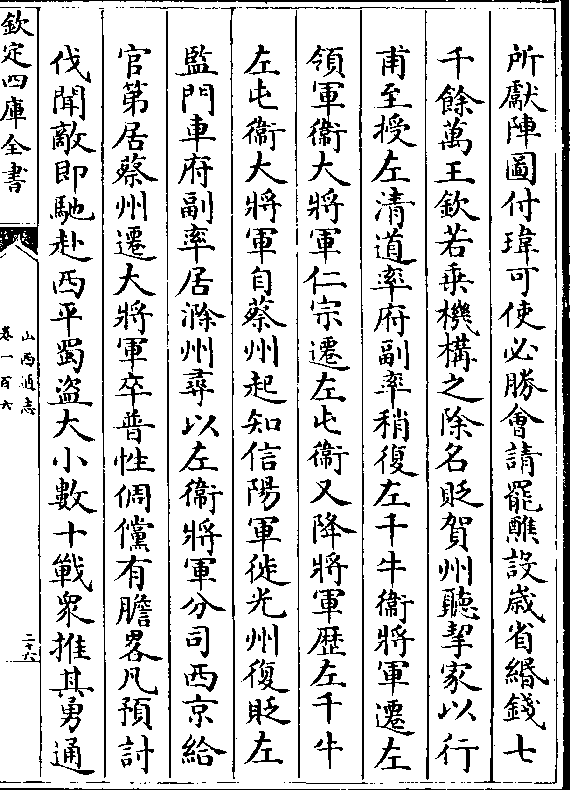 所獻陣圖付瑋可使必勝會請罷醮設歳省緡錢七
千餘萬王欽若乗機構之除名貶賀州聽挈家以行
甫至授左清道率府副率稍復左千牛衞將軍遷左
領軍衞大將軍仁宗遷左屯衞又降將軍歴左千牛
左屯衞大將軍自蔡州起知信陽軍徙光州復貶左
監門車府副率居滁州尋以左衞將軍分司西京給
官第居蔡州遷大將軍卒普性倜儻有膽畧凡預討
伐聞敵即馳赴西平蜀盗大小數十戰衆推其勇通
欽定四庫全書
山西通志
卷一百六
二十六